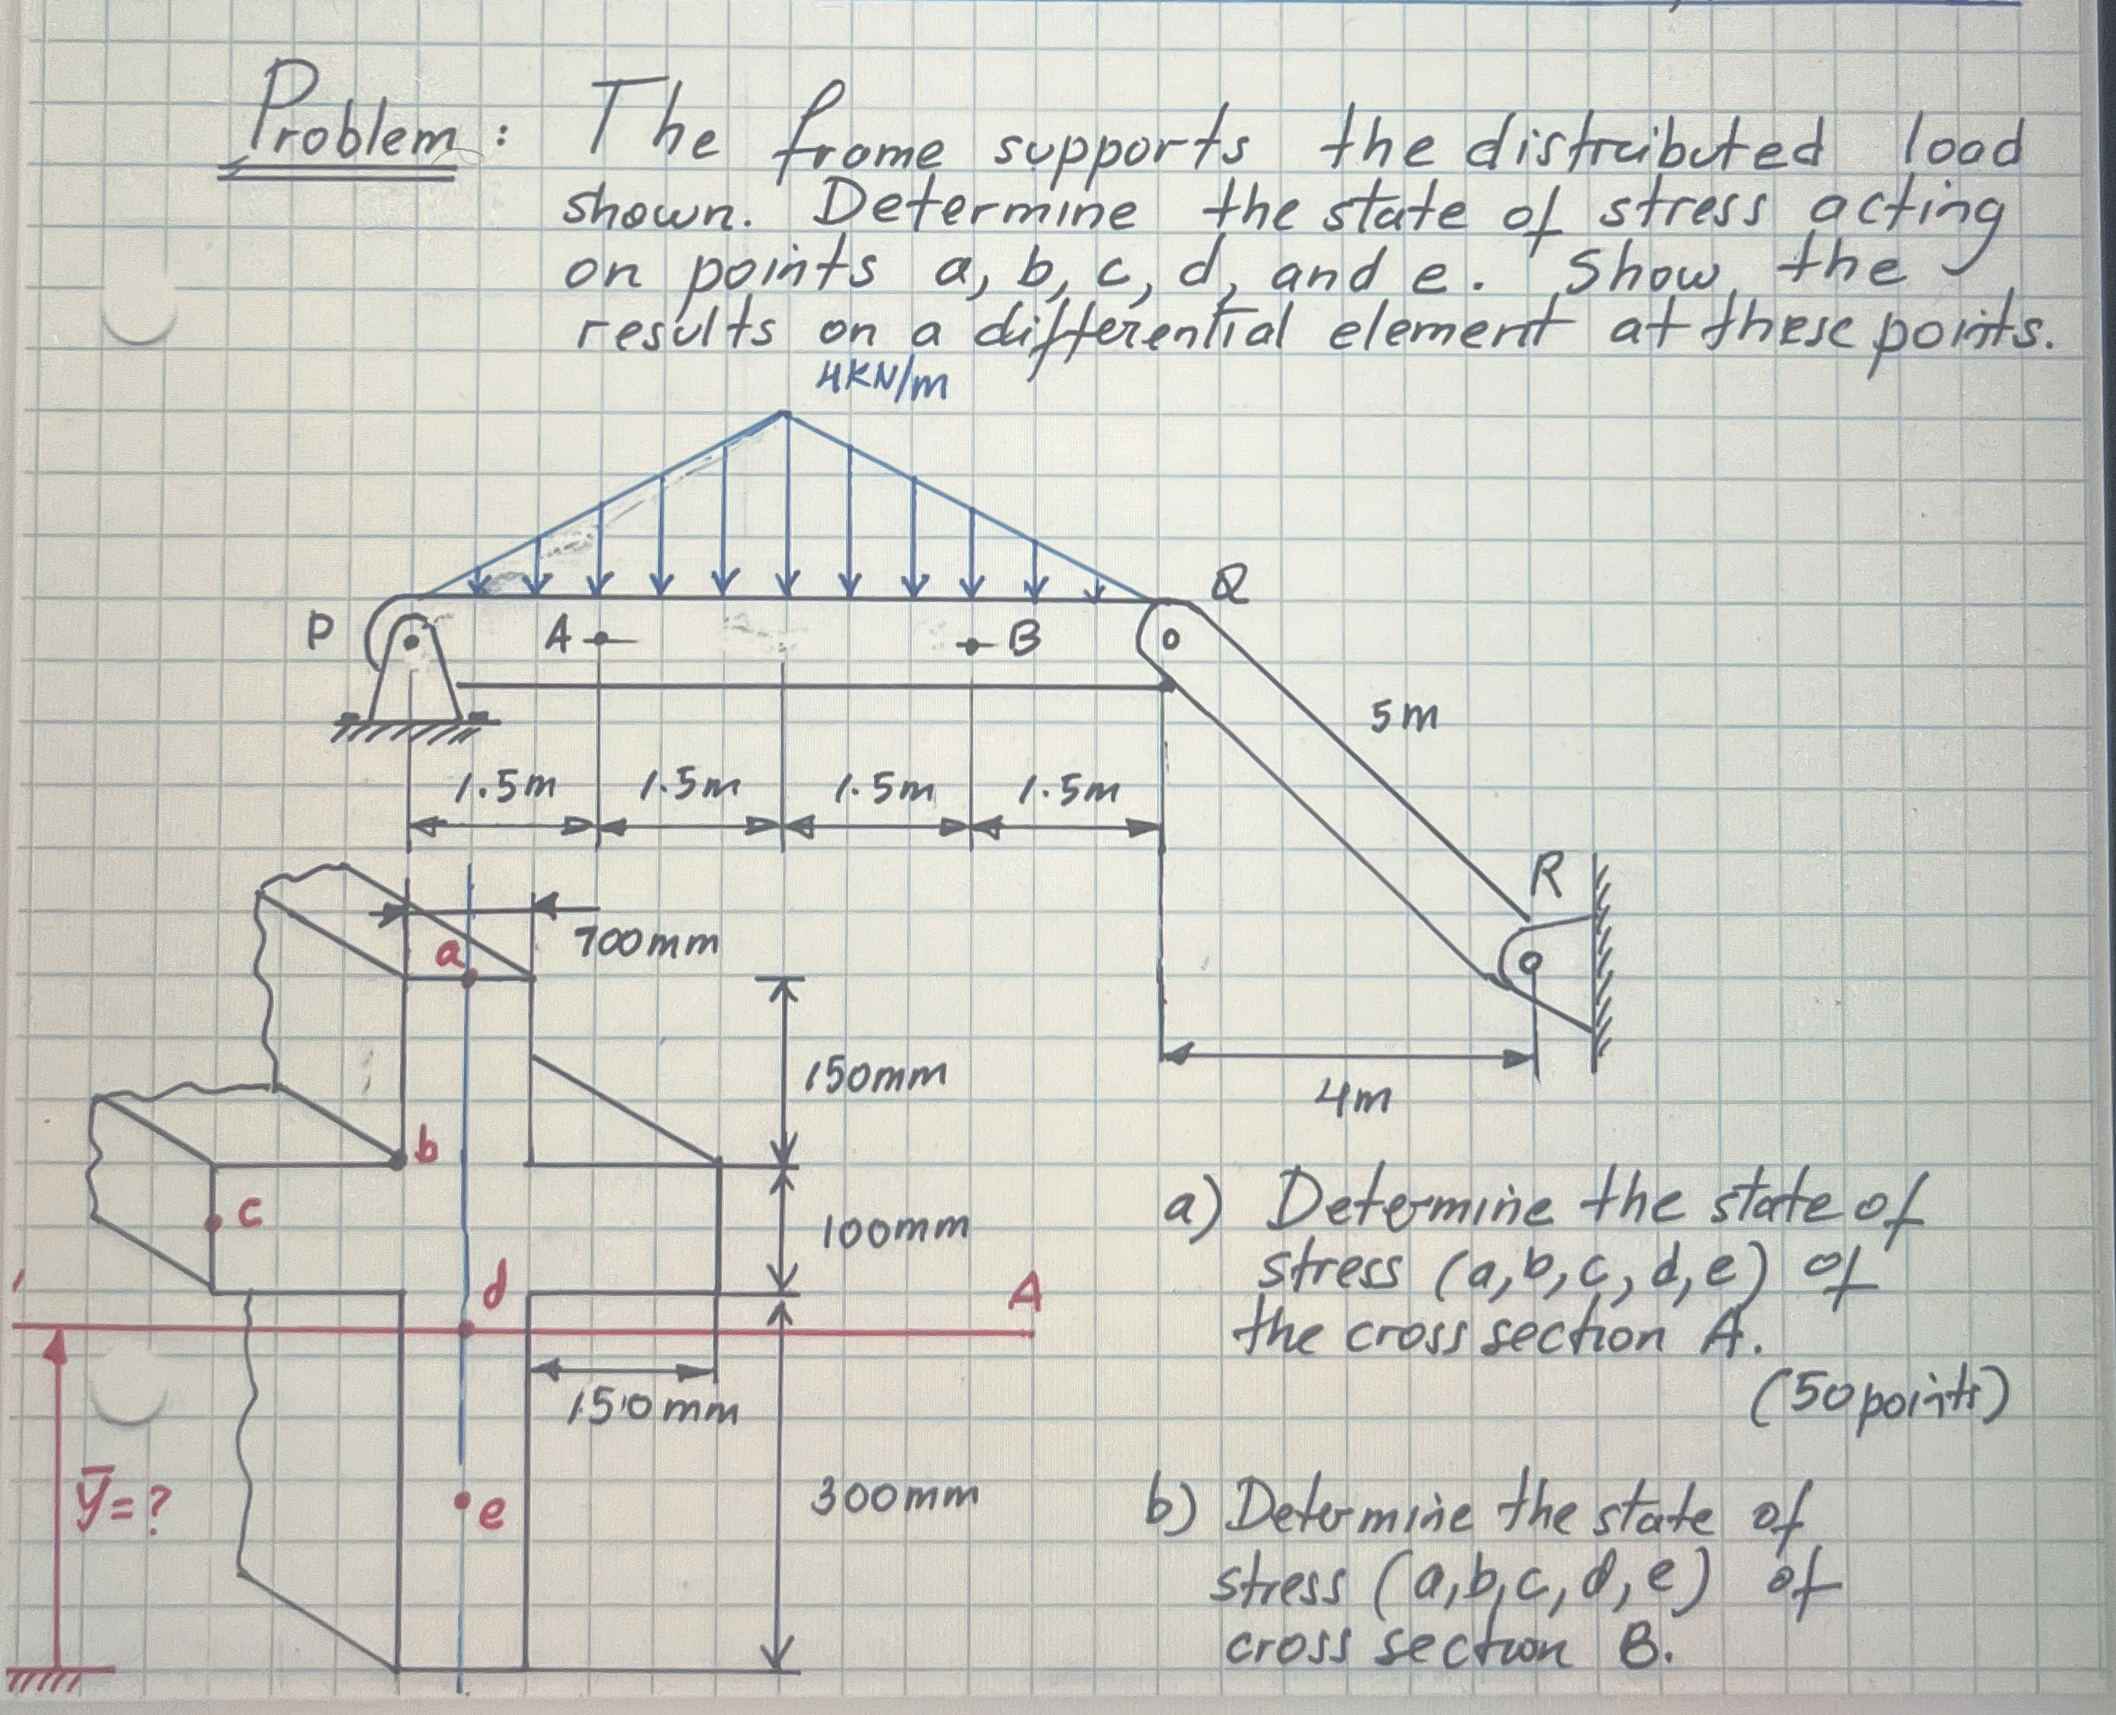 Problem: The frame supports the distributed load
shown. Determine the state of stress acting
on points a, b, c, d, and e. Show the
results on a differential element at these points.
4KN/m
P
A
B
Q
5m
1.5m 1.5m 1.5m 1.5m
R
700mm
a
150mm
4m
b
c
100mm
d
A
150mm
ȳ=?
e
300mm
a) Determine the state of
stress (a,b,c,d,e) of
the cross section A.
(50points)
b) Determine the state of
stress (a,b,c,d,e) of
cross section B.